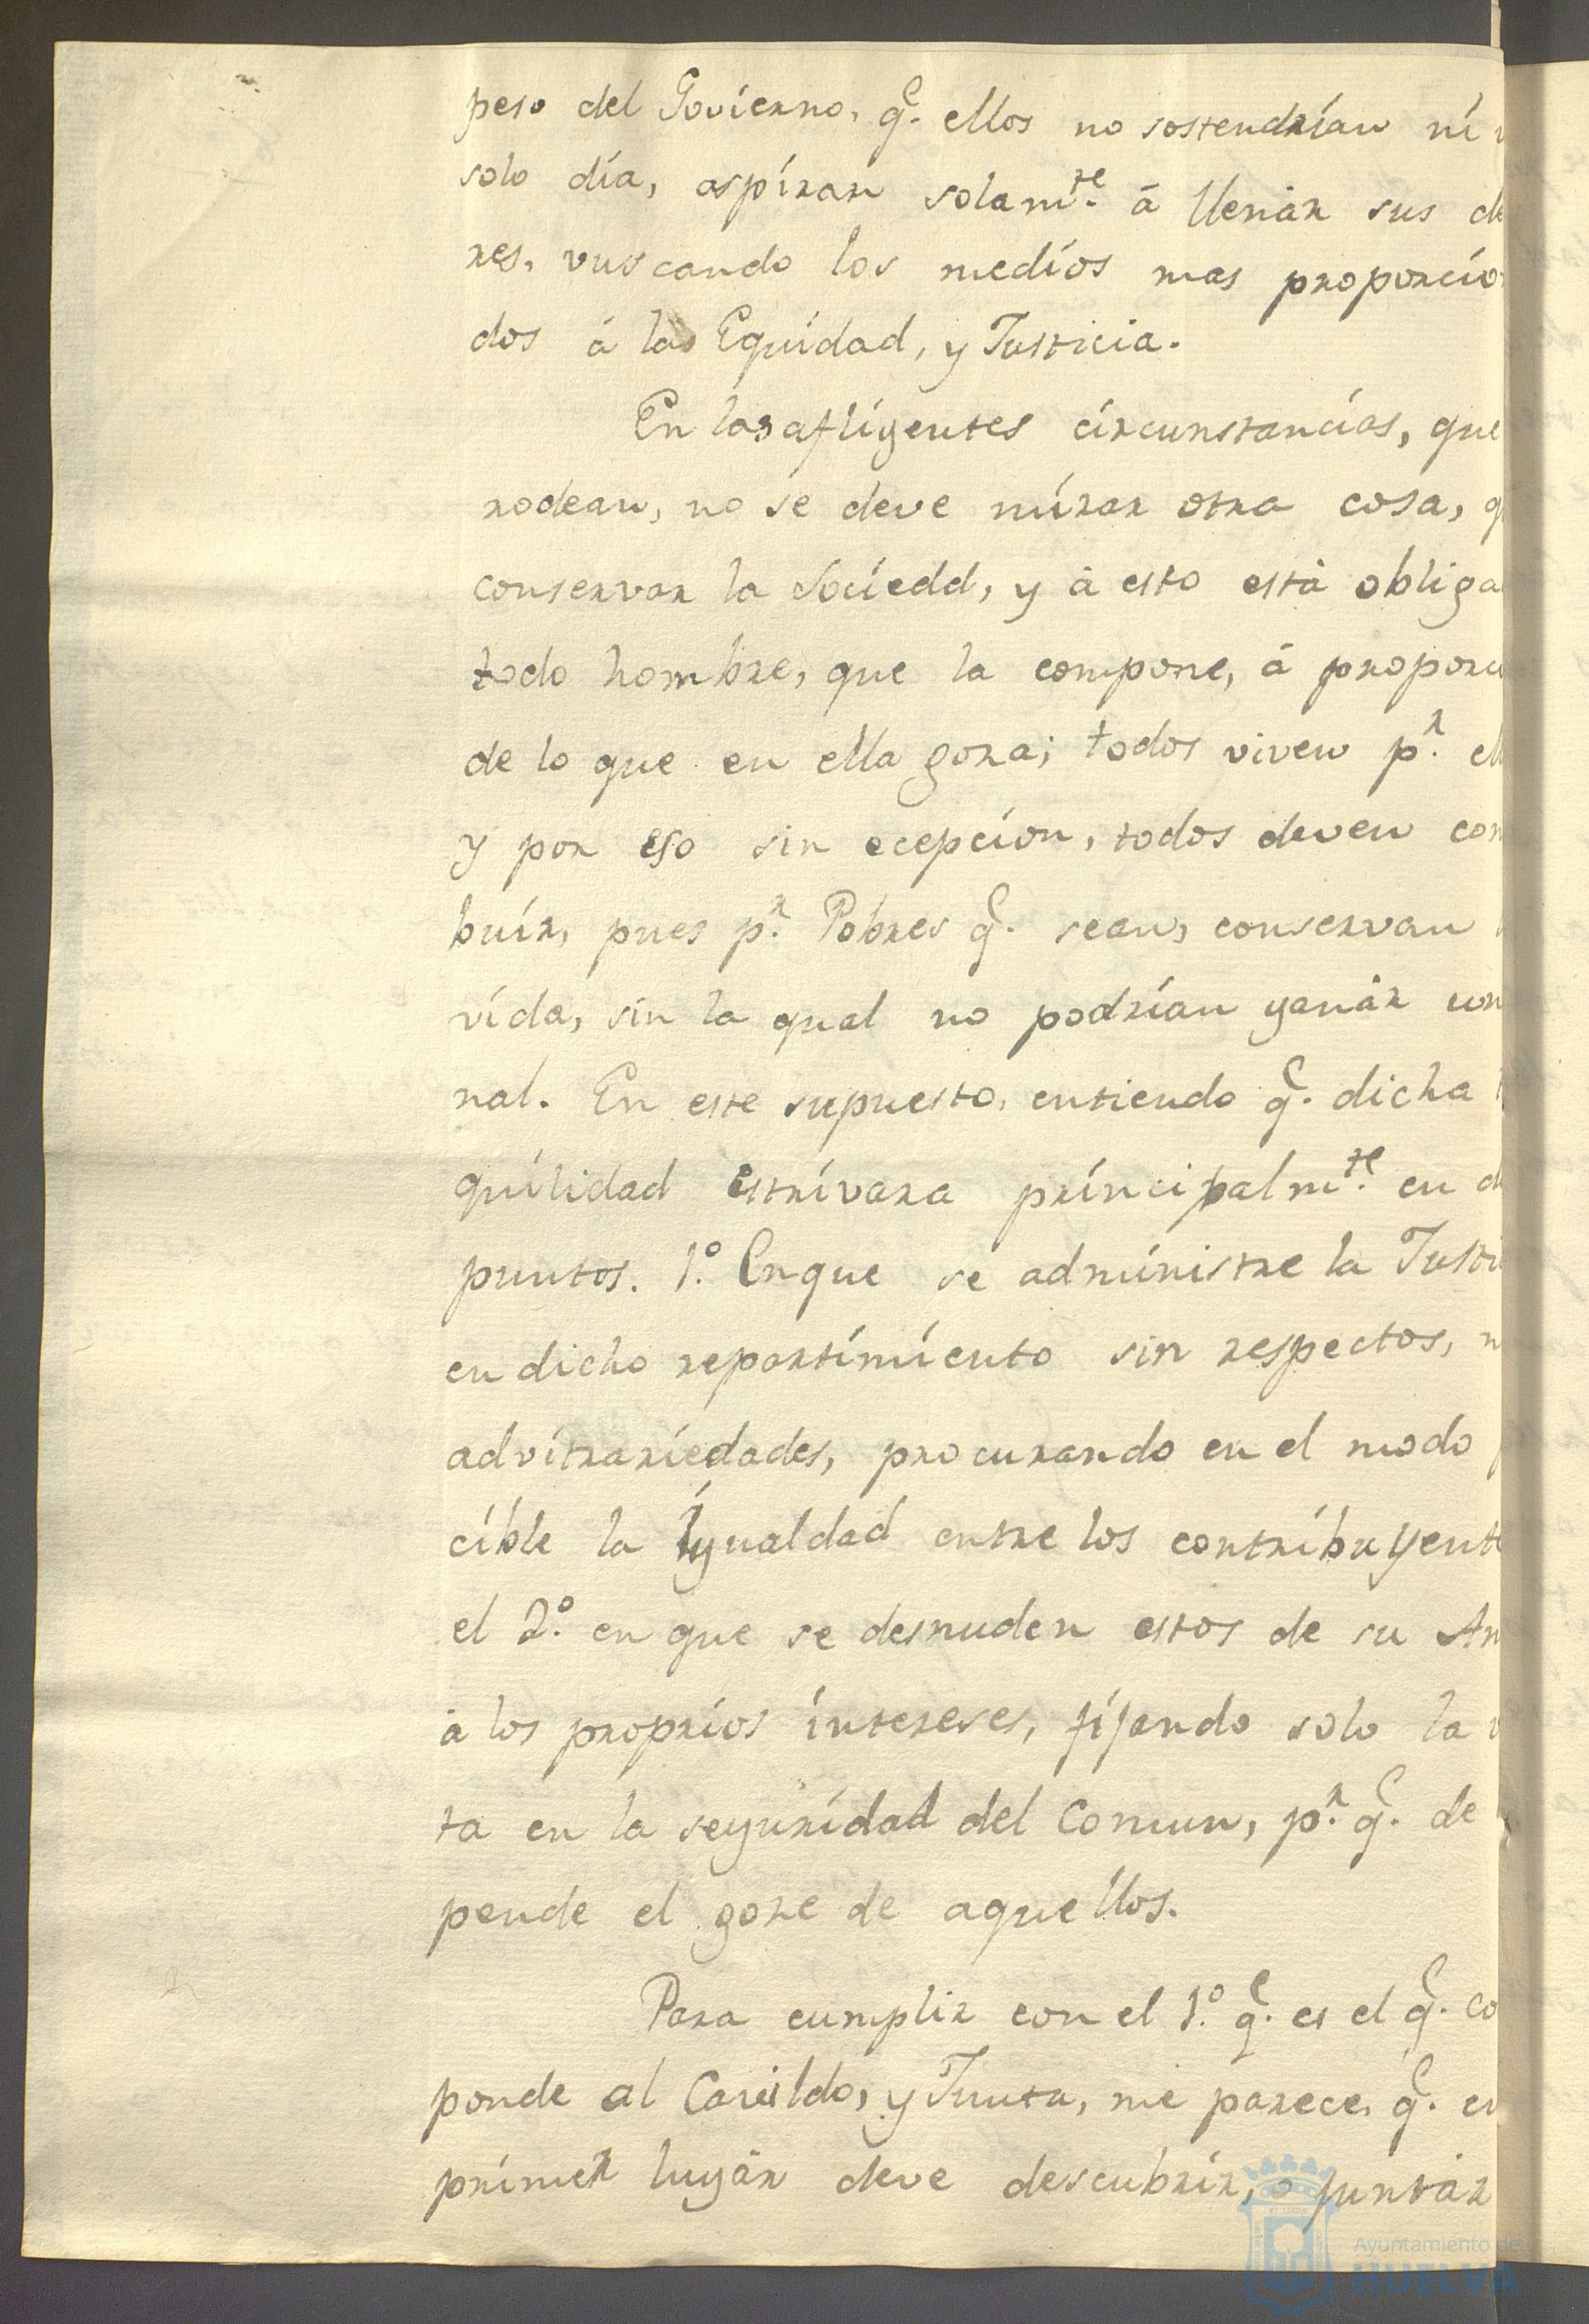 peso del Govierno, q.e ellos no sostendrían ní
solo día, aspíran solam.te á llenár sus de
res, vuscando los medíos mas proporcío
dos á la Equídad, y Justicia.
En las afligentes círcunstancías, que
rodean, no se deve mírar otra cosa, q
conservar la Socíedd, y á esto está obliga
todo hombre, que la compone, á proporci
de lo que en ella goza; todos viven p.r ell
y por eso sin ecepcíon, todos deven con
buír, pues p.r Pobres q.e sean, conservan
vída, sín la qual no podrían ganár con
nal. En este supuesto, entiendo q.e dicha
quílidad estrívara príncipalm.te en d
puntos. 1.o Enque se admínistre la Justi
en dicho repartímíento sin respectos, n
advítraríedades, procurando en el modo
cíble la Ígualdad entre los contríbuyent
el 2.o en que se desnuden estos de su Am
á los propríos íntereses, fíjando solo la v
ta en la seguridad del Comun, p.r q.e de
pende el goze de aquellos.
Para cumplir con el 1.o q.e es el q.e co
ponde al Cavildo, y Junta, me parece, q.e en
prímer lugár deve descubrír, o juntár
Ayuntamiento de
HUELVA